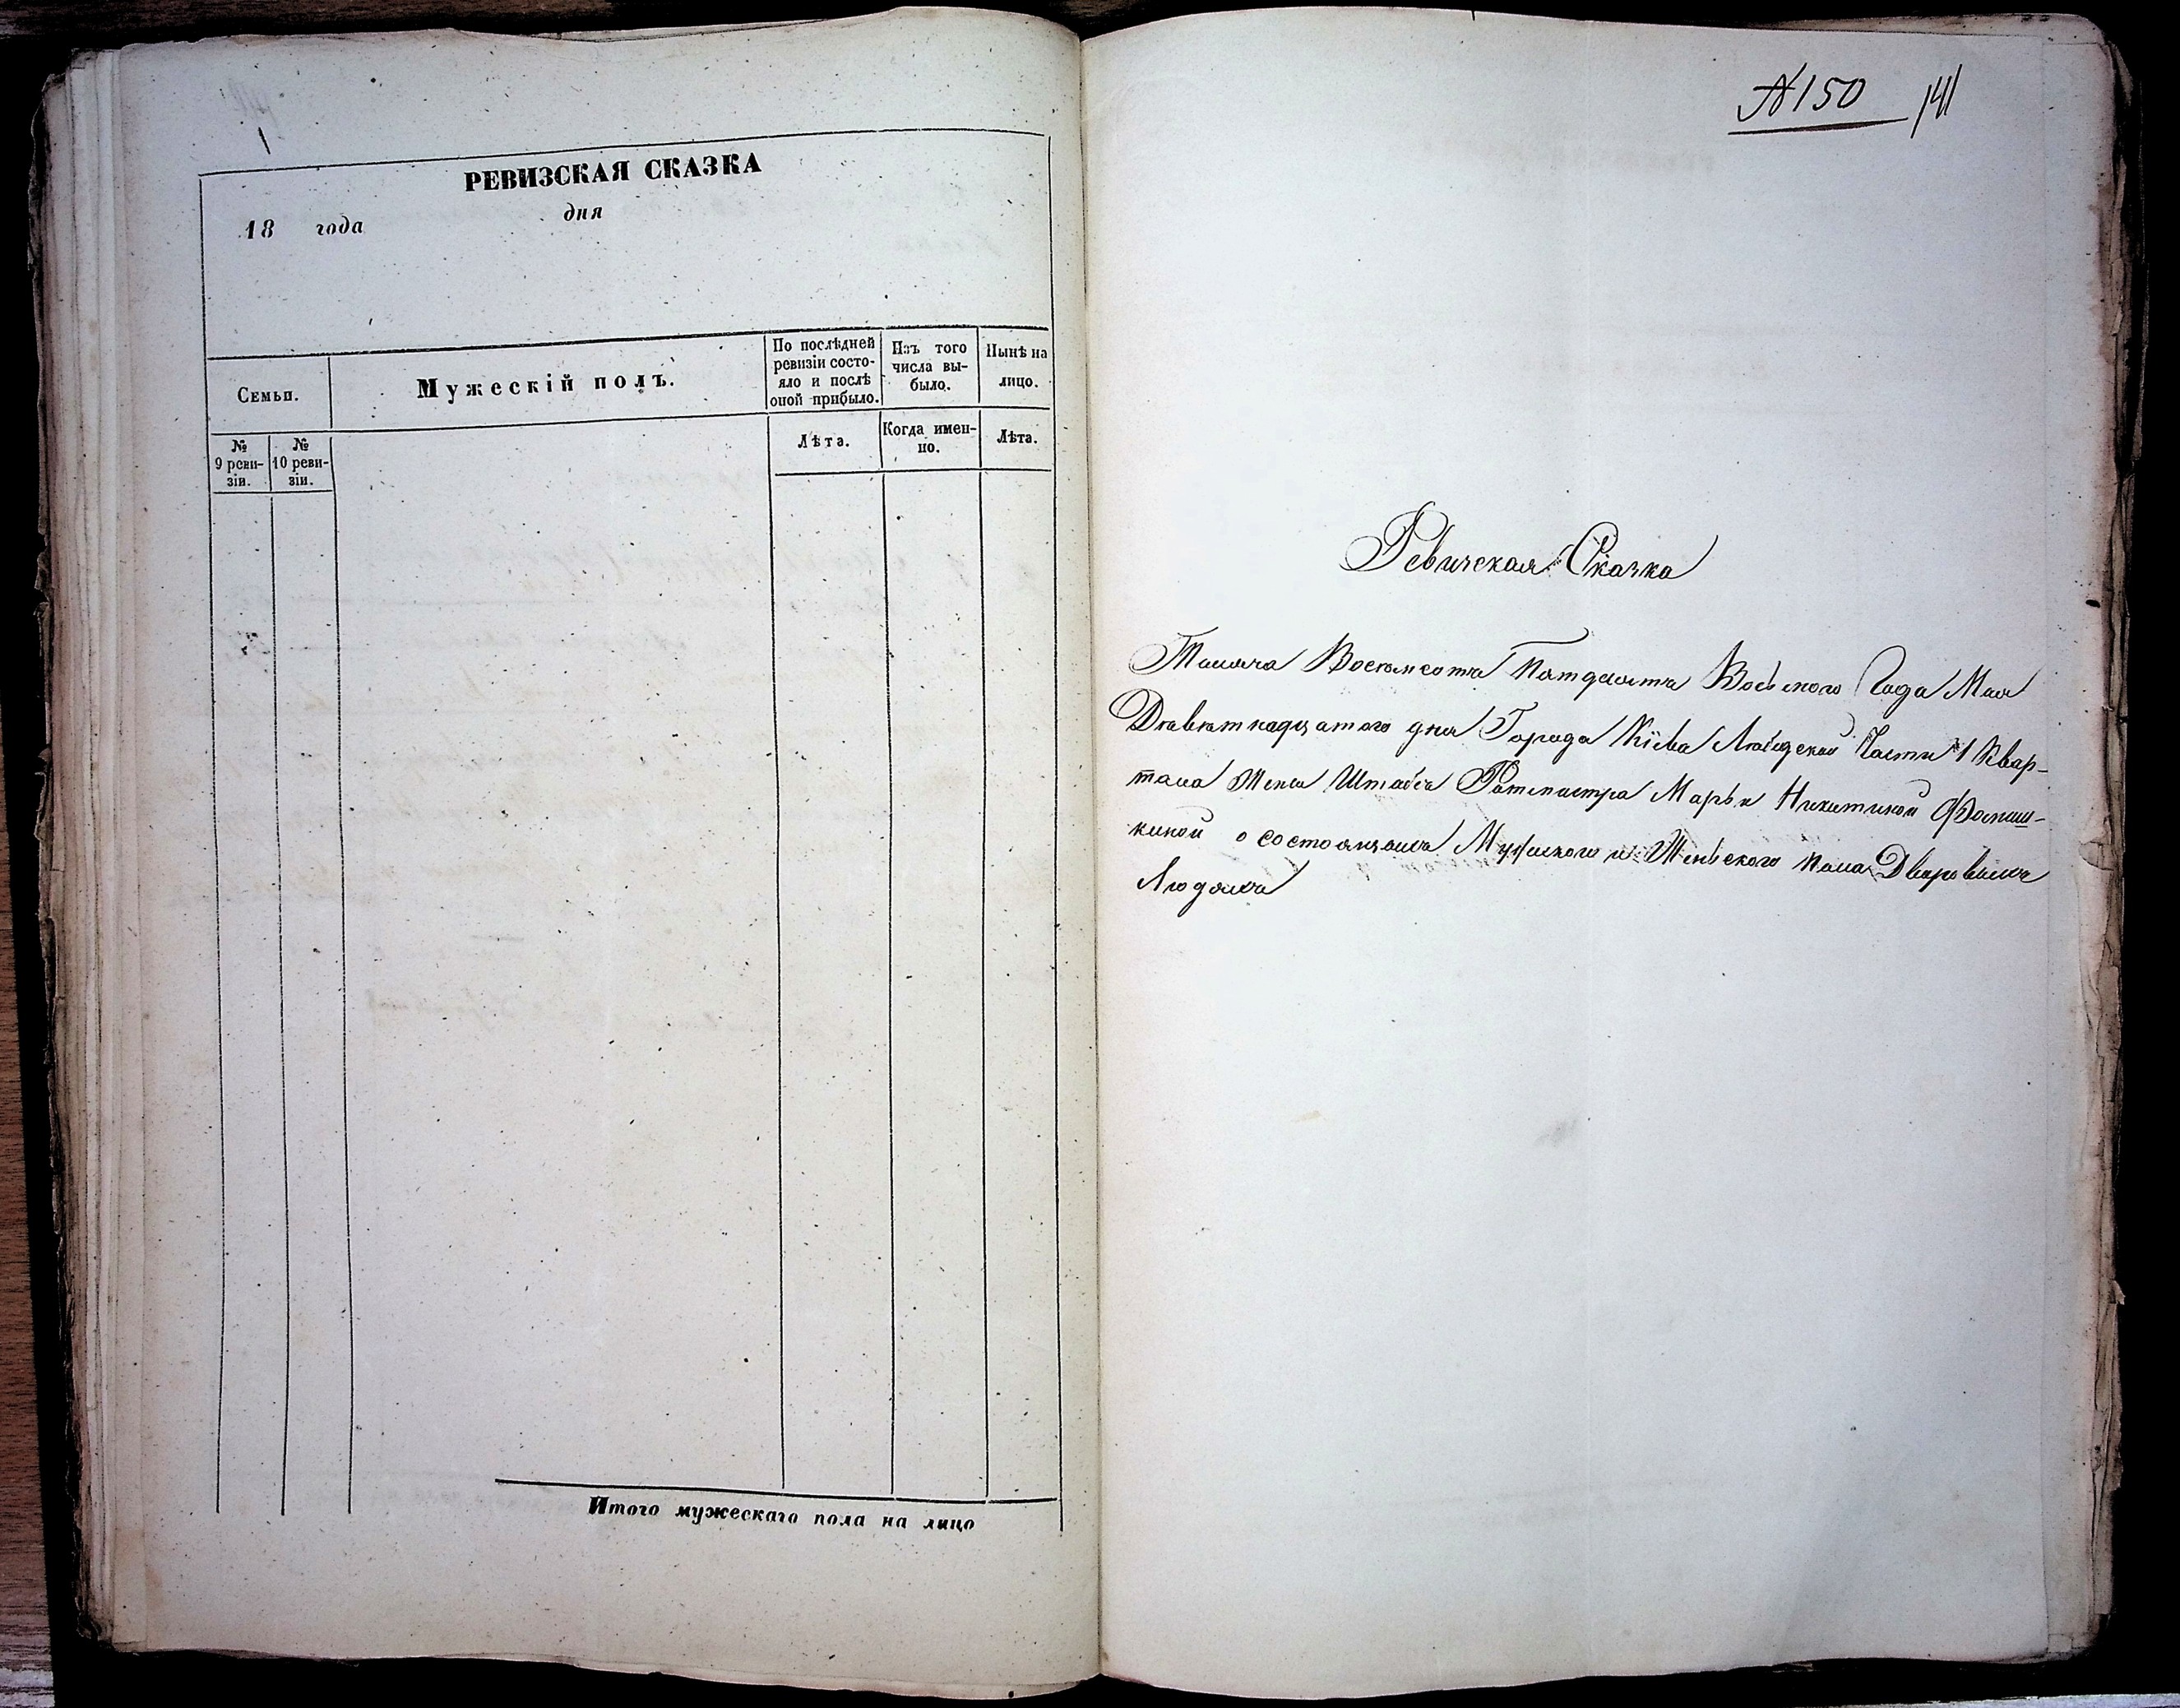 РЕВИЗСКАЯ СКАЗКА
18 года дня
Семьи.
Мужескій полъ.
По послѣдней ревизіи состо-
яло и послѣ оной прибыло.
Изъ того числа вы-
было.
Нынѣ на лицо.
№ 9 реви-
зіи.
№ 10 реви-
зіи.
Лѣта.
Когда имен-
но.
Лѣта.
Итого мужескаго пола на лицо
№ 150 141
Ревизская Сказка
Тысяча Восемсотъ Пятдесятъ Восьмого Года Мая
Девятнадцатого дня Города Кіева Лыбедской Части 1 Квар-
тала Жены Штабсъ Ротмистра Марьи Никитиной
о состоящихъ Мужского и Женьского пола Дворовыхъ
Людяхъ